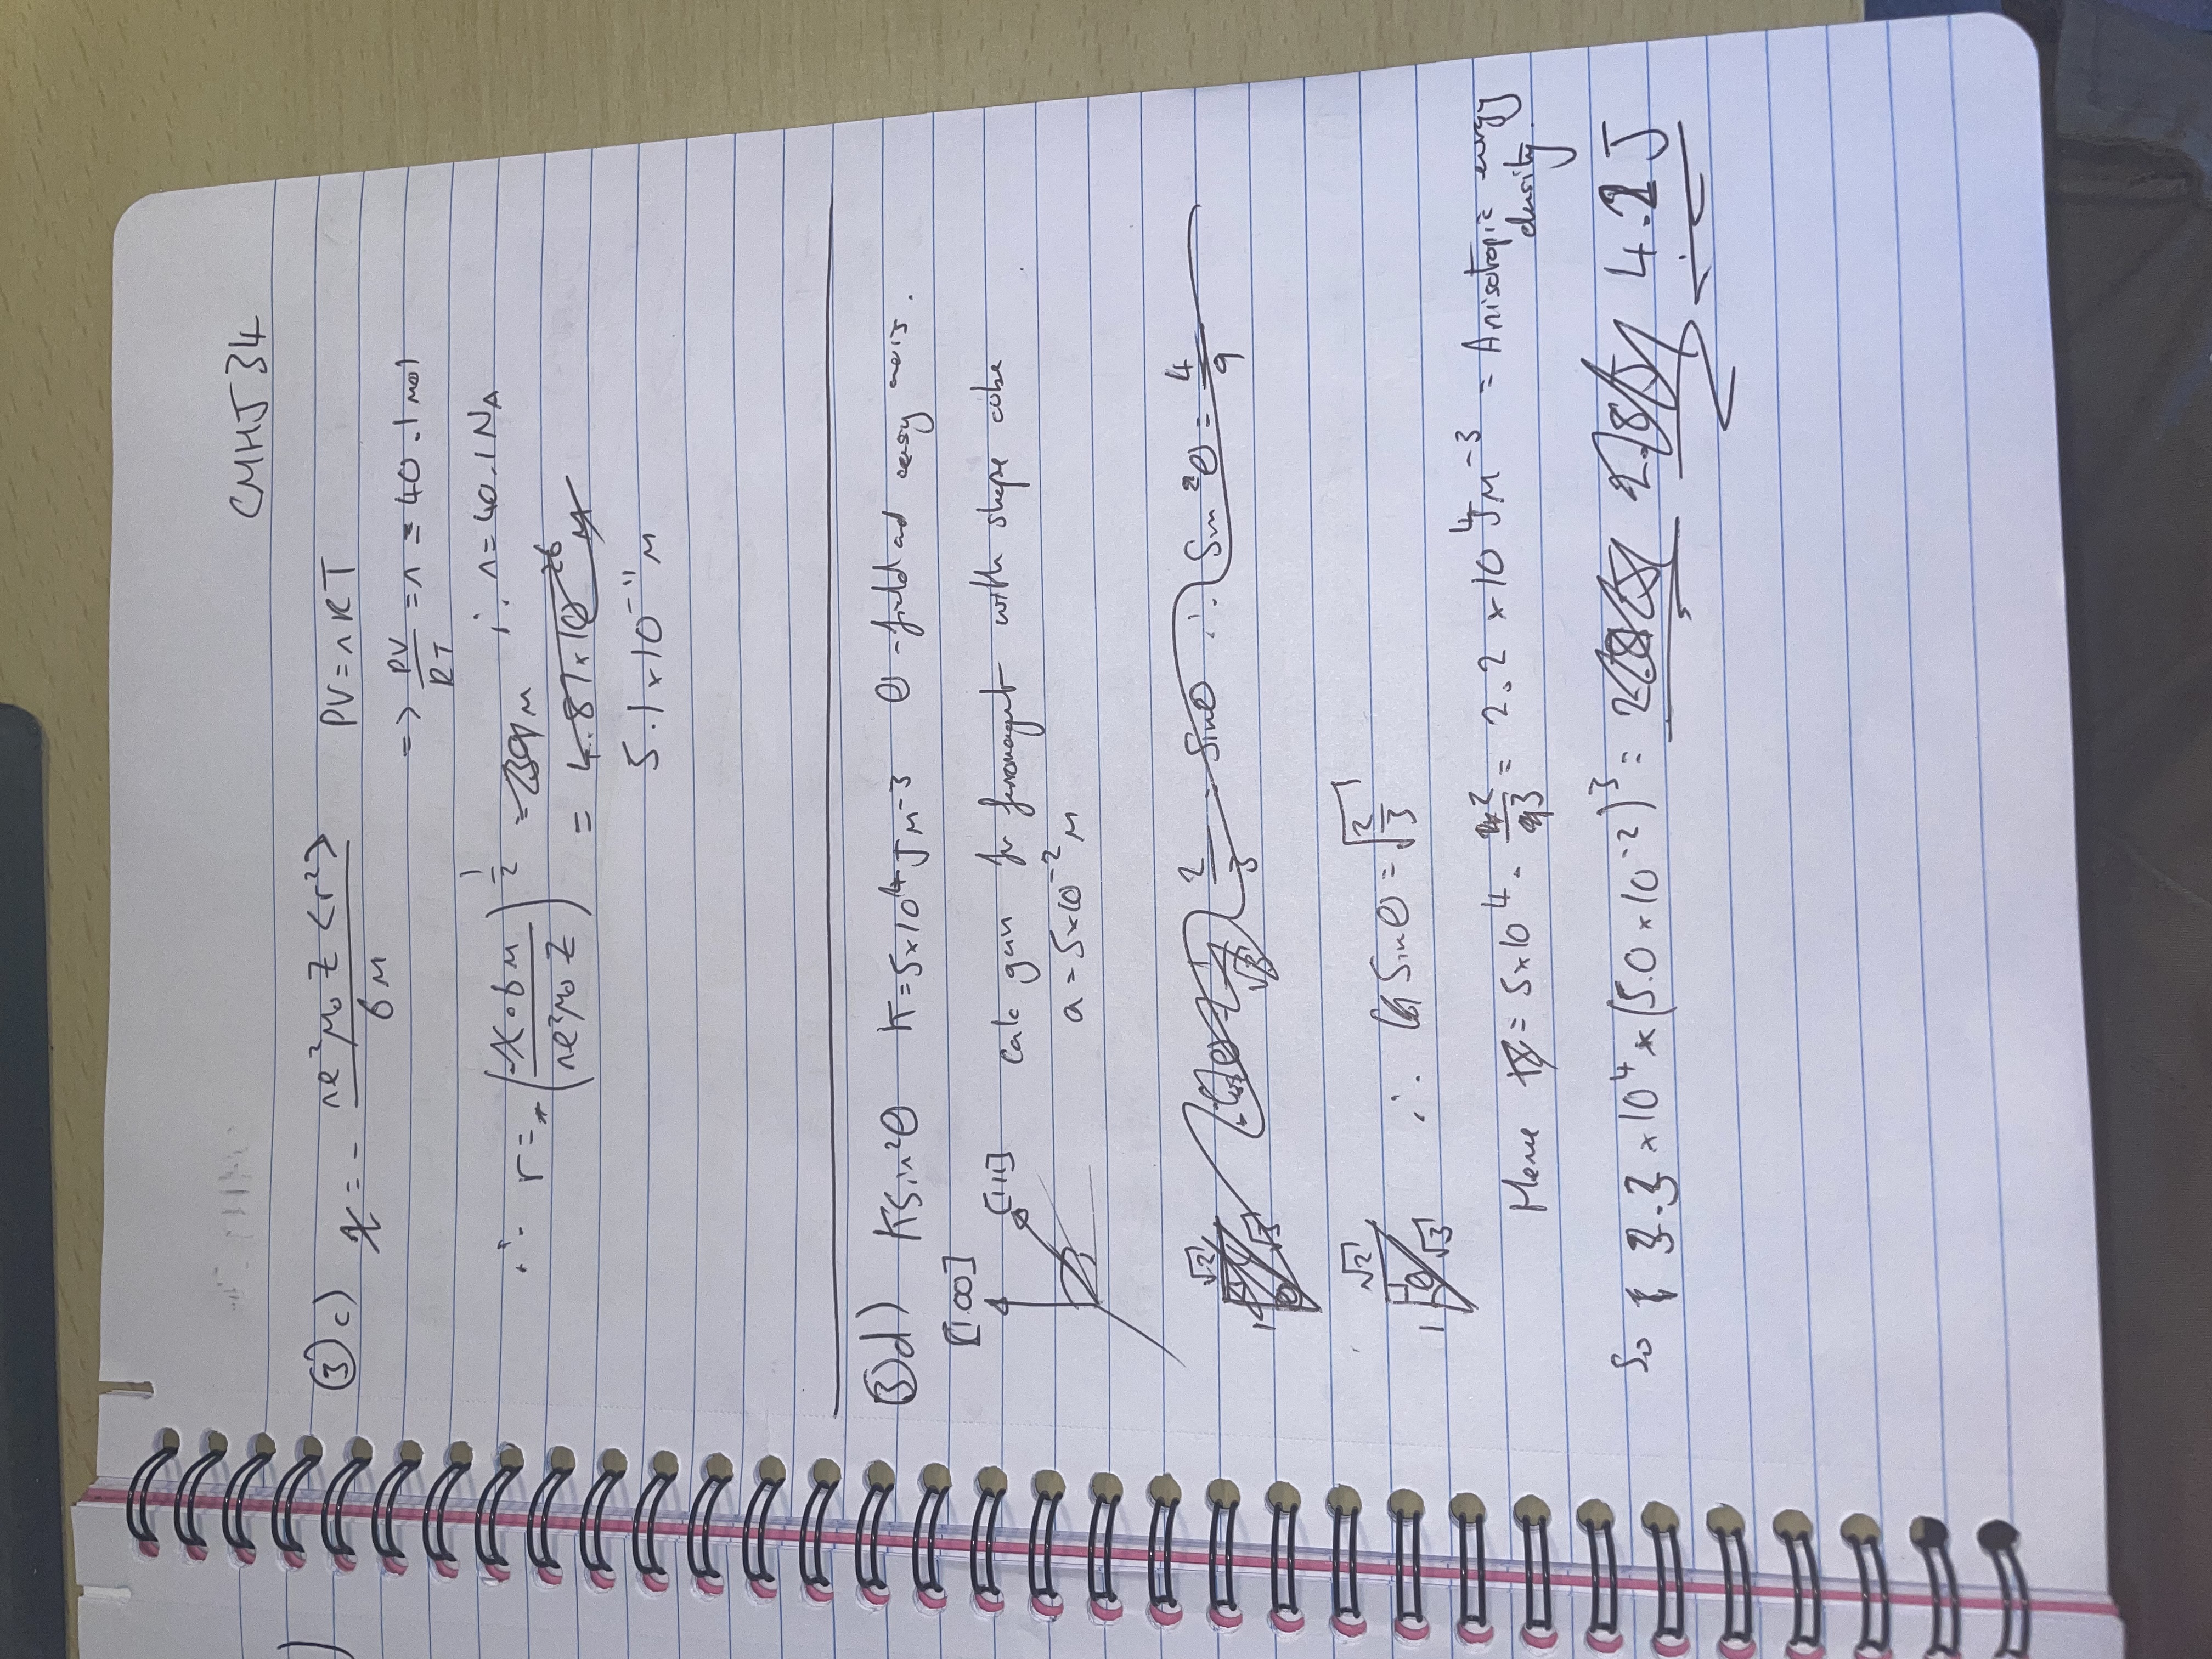 CMHJ34
③ c) χ = - ne²μ₀ Z <r²> / 6m PV = nRT
=> PV/RT = n = 40.1 mol
∴ r = (-χ·6m / ne²μ₀ Z)^1/2 = m ∴ n = 40.1 NA
= 4.87×10 26 m
5.1×10⁻¹¹ m
③ d) Ksin²θ K = 5×10⁴ J m⁻³ θ - field and easy axis.
[100]
[111] calc for ferromagnet with shape cube
a = 5×10⁻² m
√2 1 √3 2/3 = sinθ ∴ Sin²θ = 4/9
√2 1 θ √3 ∴ Sinθ = √2/3
Hence = 5×10⁴ · 2/3 = 2.2 × 10⁴ J m⁻³ = Anisotopic energy
density.
So 3.3 × 10⁴ × (5.0 × 10⁻²)³ = 2.8 J 4.2 J